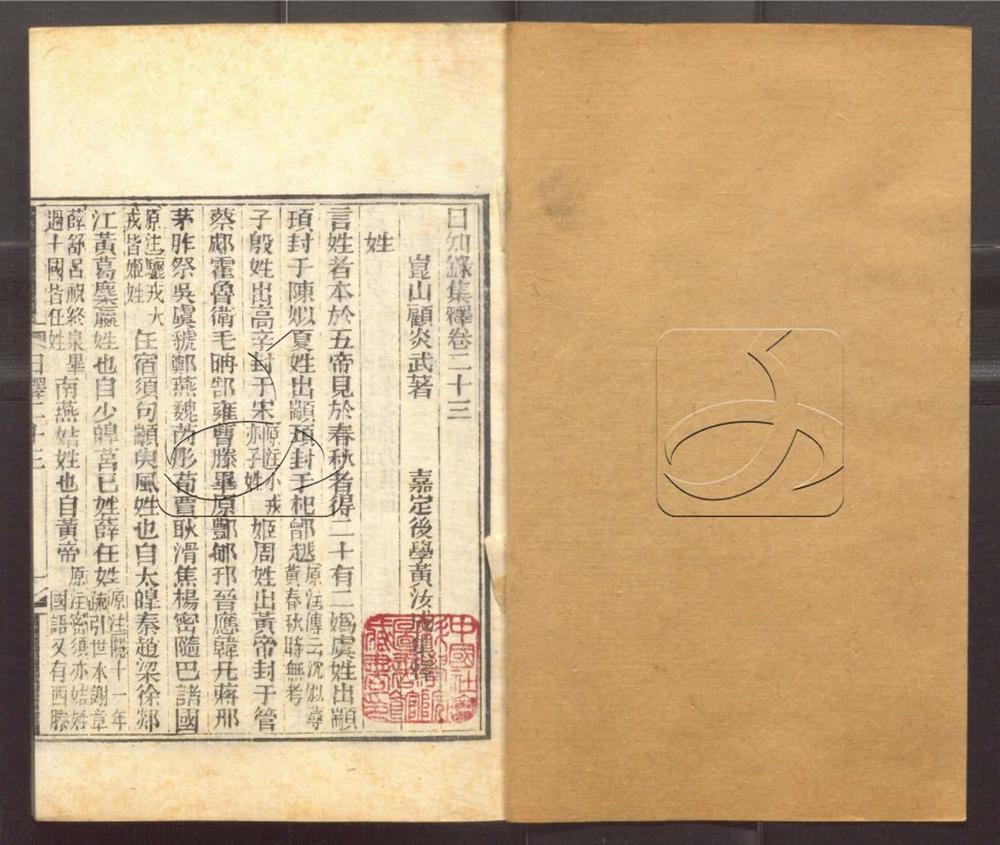 日知錄集釋卷二十三
崑山顧炎武著 嘉定後學黃汝成集釋
姓
言姓者本於五帝見於春秋者得二十有二嬀虞姓出顓
頊封于陳姒夏姓出顓頊封于杞鄫越原注傳云沈姒蓐黃春秋時無考
子殷姓出高辛封于宋原注小戎亦子姓姬周姓出黃帝封于管
蔡郕霍魯衛毛聃郜雍曹滕畢原酆郇邘晉應韓凡蔣邢
茅胙祭吳虞虢鄭燕魏芮彤荀賈耿滑焦楊密隨巴諸國
原注驪戎大戎皆姬姓任宿須句顓臾風姓也自太皡秦趙梁徐郯
江黃葛麇嬴姓也自少皡莒已姓薛任姓原注隱十一年疏引世本謝章
薛舒呂祝終泉畢過十國皆任姓南燕姞姓也自黃帝原注密須亦姞姓國語又有西滕
日釋二十三
中國社會
圖書館
藏書